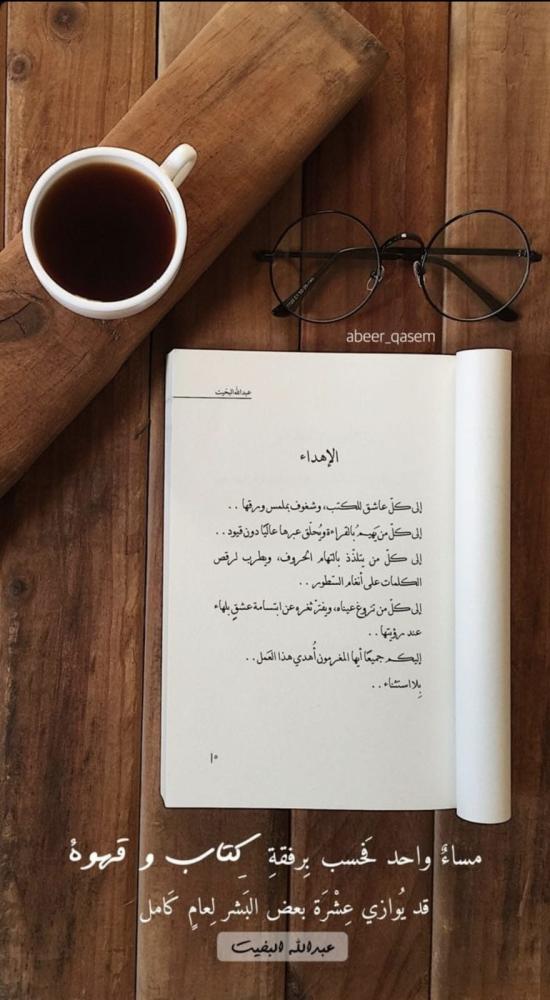 abeer_qasem
عبدالله البخيت
الإهداء
إلى كلّ عاشق للكتب، وشغوف بملمس ورقها . .
إلى كلّ من يَهيمُ بالقراءة ويُحلّق عبرها عاليًا دون قيود . .
إلى كلّ من يتلذّذ بالتهام الحروف، ويطرب لرقص
الكلمات على أنغام السّطور . .
إلى كلّ من تزوغ عيناه، ويفترّ ثغره عن ابتسامة عشقٍ بلهاء
عند رؤيتها . .
إليكم جميعًا أيها المغرمون أُهدي هذا العَمل . .
بِلا استثناء . .
مساءٌ واحد فَحسب بِرفقةِ كِتاب و قهوة
قد يُوازي عِشْرَة بعض البَشر لِعامٍ كَامل
عبدالله البخيت